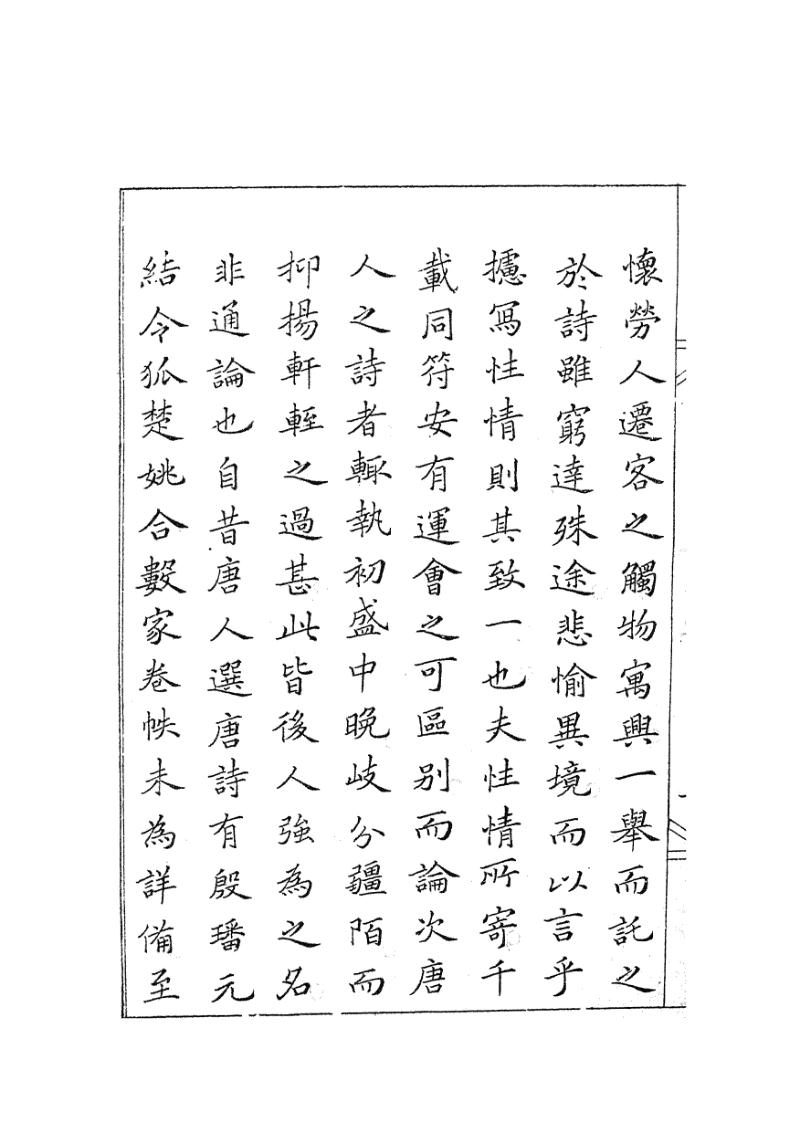 懷勞人遷客之觸物寓興一舉而託之
於詩雖窮達殊途悲愉異境而以言乎
攄寫性情則其致一也夫性情所寄千
載同符安有運會之可區别而論次唐
人之詩者輙執初盛中晚岐分疆陌而
抑揚軒輊之過甚此皆後人強為之名
非通論也自昔唐人選唐詩有殷璠元
結令狐楚姚合數家卷帙未為詳備至